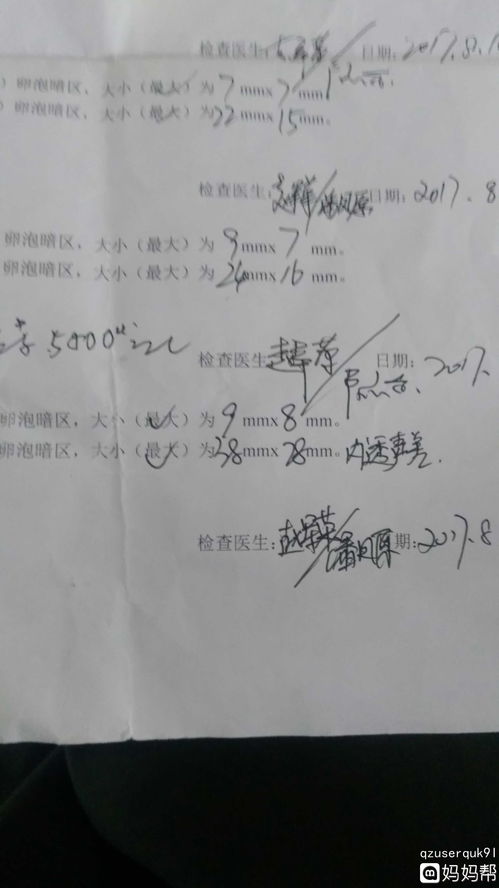 检查医生: 日期: 2017.8.1
）卵泡暗区，大小（最大）为7mmx7mm
）卵泡暗区，大小（最大）为22mmx15mm。
检查医生: 日期: 2017.8
卵泡暗区，大小（最大）为9mmx7mm。
卵泡暗区，大小（最大）为24mmx16mm。
5000u im
检查医生: 日期: 2017.
卵泡暗区，大小（最大）为9mmx8mm。
卵泡暗区，大小（最大）为38mmx28mm。内透声差.
检查医生: 期: 2017.8
qzuserquk91
妈妈帮